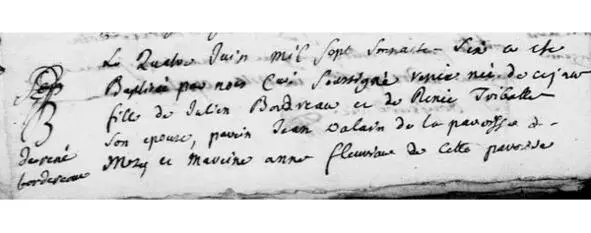 Le Quatre Juin mil sept soixante Six a ete
Baptisé par nous Curé Soussigné renée née de ce jour
fille de Julien Bordereau et de Renée Tribalte
Son epouse, parein Jean de la paroisse de
et mareine anne fleurique de Cette paroisse
de rené
bordereau